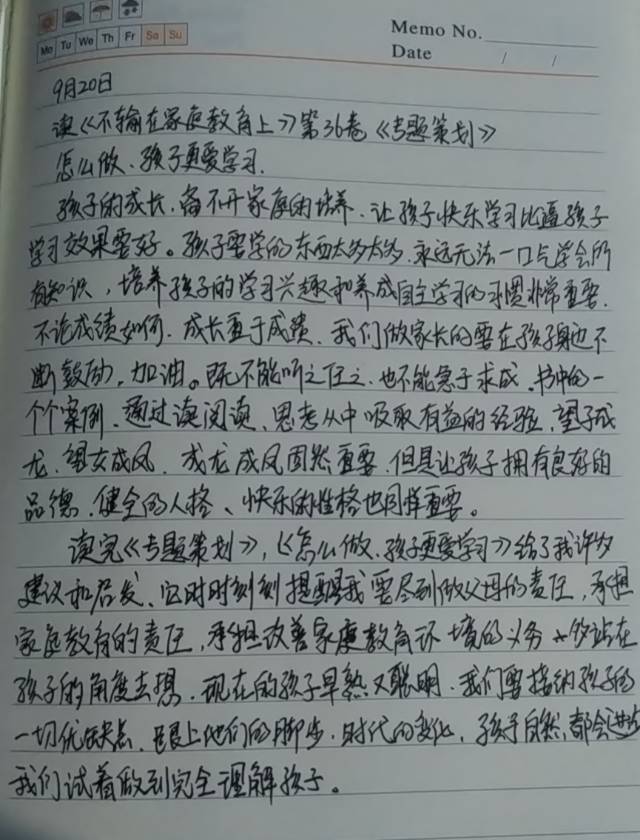 Mo Tu We Th Fr Sa Su
Memo No.
Date / /
9月20日
读《不输在家庭教育上》第36卷《专题策划》
怎么做、孩子更爱学习.
孩子的成长,离不开家庭的培养.让孩子快乐学习比逼孩子
学习效果要好。孩子要学的东西太多太多.永远无法一口气学会所
有知识,培养孩子的学习兴趣和养成自主学习的习惯非常重要.
不论成绩如何.成长重于成绩.我们做家长的要在孩子身边不
断鼓励,加油。既不能听之任之.也不能急于求成.书中的一
个个案例.通过读阅读、思考从中吸取有益的经验.望子成
龙.望女成风.成龙成风固然重要.但是让孩子拥有良好的
品德.健全的人格、快乐的性格也同样重要。
读完《专题策划》,《怎么做、孩子更爱学习》给了我许多
建议和启发、它时时刻刻提醒我要尽到做父母的责任,承担
家庭教育的责任,承担改善家庭教育环境的义务 站在
孩子的角度去想.现在的孩子早熟又聪明.我们要接纳孩子的
一切优缺点.跟上他们的脚步.时代的变化,孩子自然,都会进步
我们试着做到完全理解孩子。